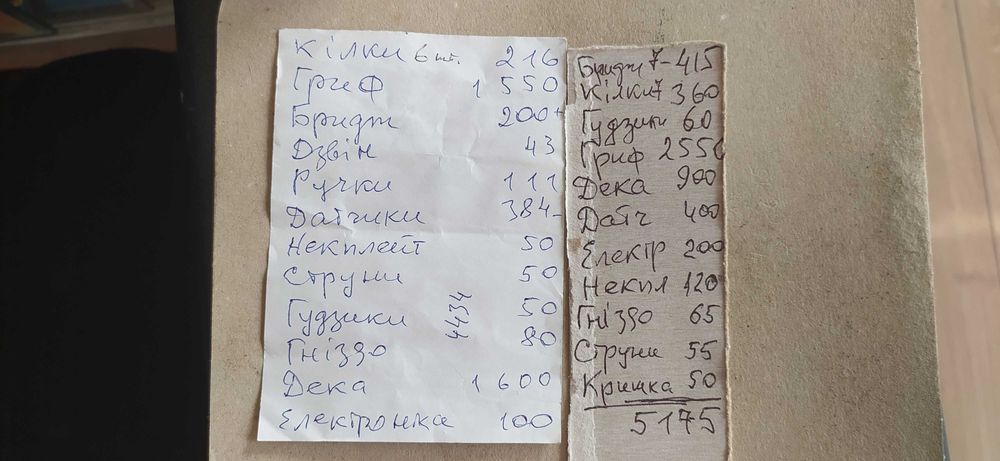 Кілки 6 шт. 216
Гриф 1 550
Бридж 200+
Дзвін 43
Ручки 111
Датчики 384-
Некплейт 50
Струни 50
Гудзики 50
4434
Гніздо 80
Дека 1 600
Електроніка 100
Бридж 7-415
Кілки7 360
Гудзики 60
Гриф 2550
Дека 900
Датч 400
Електр 200
Некпл 120
Гніздо 65
Струни 55
Кришка 50
5175